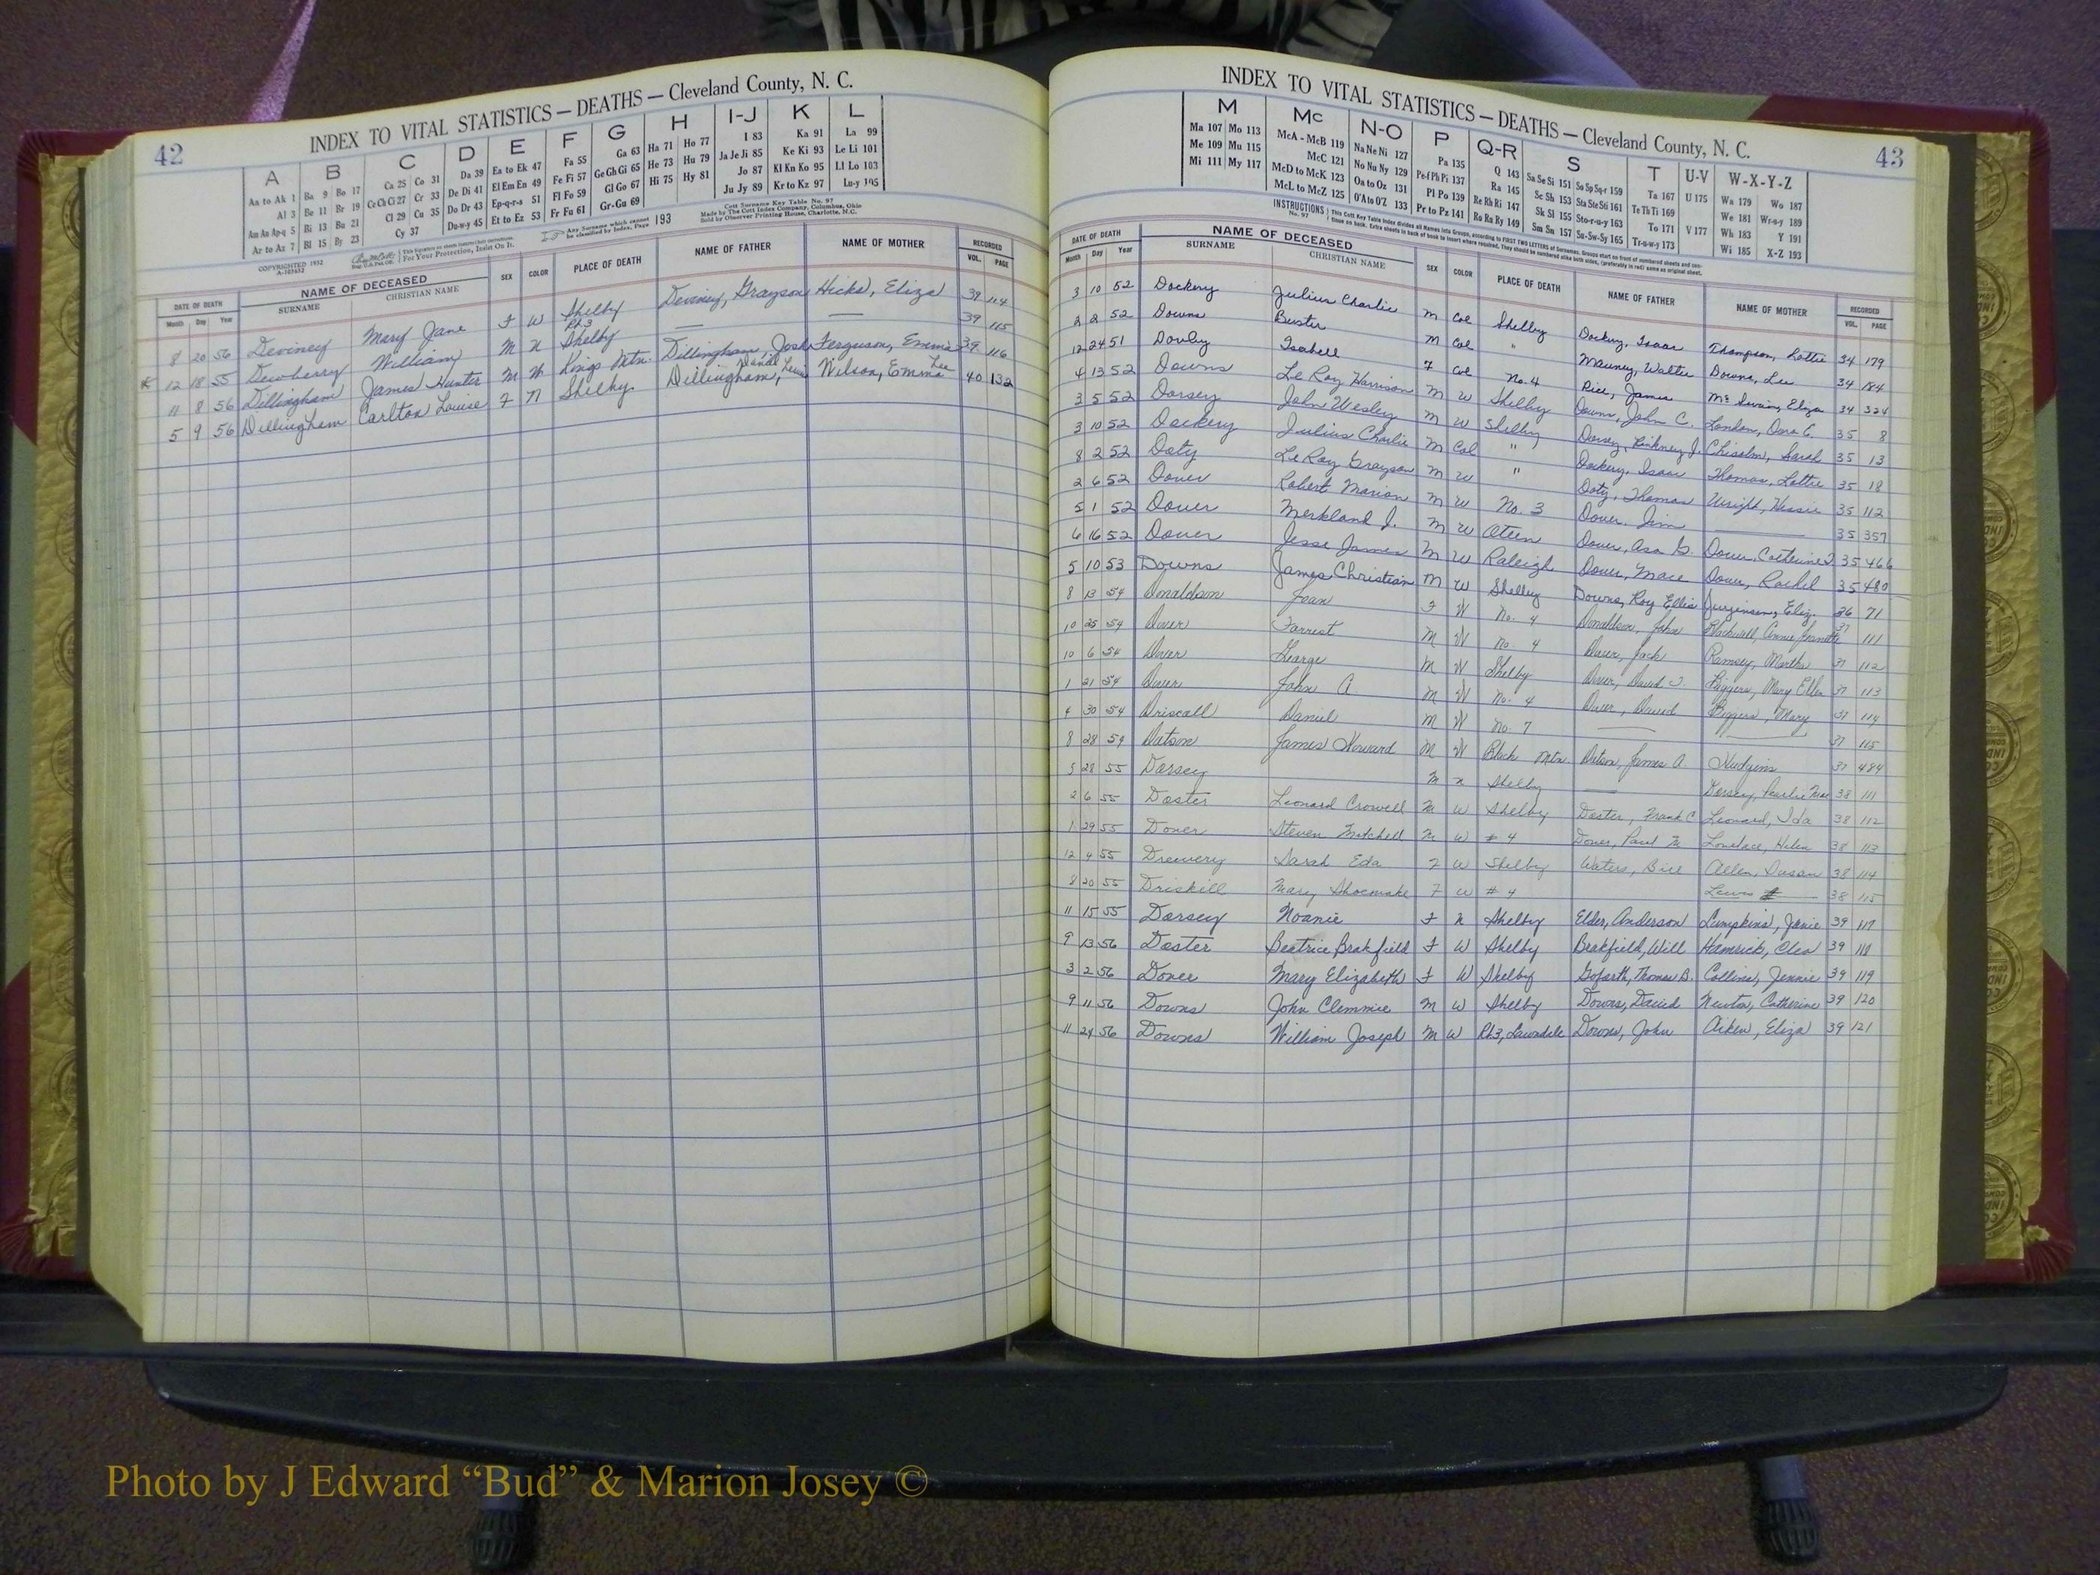 42
INDEX TO VITAL STATISTICS — DEATHS — Cleveland County, N. C.
A B C D E F G H I-J K L
Aa to Ak 1 Ba 9 Bo 17 Ca 25 Co 31 Da 39 Ea to Ek 47 Fa 55 Ga 63 Ha 71 Ho 77 I 83 Ka 91 La 99
Al 3 Be 11 Br 19 Ce Ch Ci 27 Cr 33 De Di 41 El Em En 49 Fe Fi 57 Ge Gh Gi 65 He 73 Hu 79 Ja Je Ji 85 Ke Ki 93 Le Li 101
Am An Ap-q 5 Bi 13 Bu 21 Cl 29 Cu 35 Do Dr 43 Ep-q-r-s 51 Fl Fo 59 Gl Go 67 Hi 75 Hy 81 Jo 87 Kl Kn Ko 95 Ll Lo 103
Ar to Az 7 Bl 15 By 23 Cy 37 Du-w-y 45 Et to Ez 53 Fr Fu 61 Gr-Gu 69 Ju Jy 89 Kr to Kz 97 Lu-y 105
COPYRIGHTED 1932
For Your Protection, Insist On It.
Any Surname which cannot be classified by Index, Page 193
Cott Surname Key Table No. 97
Made by The Cott Index Company, Columbus, Ohio
Sold by Observer Printing House, Charlotte, N.C.
DATE OF DEATH NAME OF DECEASED SEX COLOR PLACE OF DEATH NAME OF FATHER NAME OF MOTHER RECORDED
Month Day Year SURNAME CHRISTIAN NAME VOL. PAGE
8 20 56 Deviney Mary Jane F W Shelby Deviney, Grayson Hicks, Eliza 39 114
12 18 55 Dewberry William M N Rt 3 Shelby — — 39 115
11 8 56 Dillingham James Hunter M W Kings Mtn. Dillingham, Josh Ferguson, Emma 39 116
5 9 56 Dillingham Carlton Louise F N Shelby Dillingham, Daniel Lewis Wilson, Emma Lee 40 132
43
INDEX TO VITAL STATISTICS — DEATHS — Cleveland County, N. C.
M Mc N-O P Q-R S T U-V W-X-Y-Z
Ma 107 Mo 113 McA - McB 119 Na Ne Ni 127 Pa 135 Q 143 Sa Se Si 151 So Sp Sq-r 159 Ta 167 U 175 Wa 179 Wo 187
Me 109 Mu 115 McC 121 No Nu Ny 129 Pe-f Ph Pi 137 Ra 145 Sc Sh 153 Sta Ste Sti 161 Te Th Ti 169 We 181 Wr-u-y 189
Mi 111 My 117 McD to McK 123 Oa to Oz 131 Pl Po 139 Re Rh Ri 147 Sk Sl 155 Sto-r-u-y 163 To 171 V 177 Wh 183 Y 191
McL to McZ 125 O'A to O'Z 133 Pr to Pz 141 Ro Ru Ry 149 Sm Sn 157 Su-Sw-Sy 165 Tr-u-w-y 173 Wi 185 X-Z 193
INSTRUCTIONS No. 97
DATE OF DEATH NAME OF DECEASED SEX COLOR PLACE OF DEATH NAME OF FATHER NAME OF MOTHER RECORDED
Month Day Year SURNAME CHRISTIAN NAME VOL. PAGE
3 10 52 Dockery Julius Charlie M Col Shelby Dockery, Isaac Thompson, Lottie 34 179
2 2 52 Downs Buster M Col " Mauney, Walter Downs, Lee 34 184
12 24 51 Isabell F Col No. 4 Rice, James Eliza 34 324
4 13 52 Downs Le Roy Harrison M W Shelby Downs, John C. London, Dora E. 35 8
3 5 52 Dorsey John Wesley M W Shelby Dorsey, Pinkney J. Chisolm, Sarah 35 13
3 10 52 Dockery Julius Charlie M Col " Dockery, Isaac Thomas, Lottie 35 18
8 2 52 Doty Le Roy Grayson M W " Doty, Thomas Wright, Hessie 35 112
2 6 52 Dover Robert Marion M W No. 3 Dover, Jim — 35 357
5 1 52 Dover Merkland J. M W Oteen Dover, Asa G. Dover, Catherine J. 35 466
6 16 52 Dover Jesse James M W Raleigh Dover, Mace Dover, Rachel 35 480
5 10 53 Downs James Christian M W Shelby Downs, Roy Ellis Jurgensen, Eliz. 36 71
8 13 54 Donaldson Jean F W No. 4 Donaldson, John Blackwell, Annie Jeanette 37 111
10 25 54 Dover Forrest M W No. 4 Dover, Jack Ramsey, Martha 37 112
10 6 54 Dover George M W Shelby Dover, David J. Biggers, Mary Ellen 37 113
1 21 54 Dover John A M W No. 4 Dover, David Biggers, Mary 37 114
4 30 54 Driscall Daniel M W No. 7 — — 37 115
8 28 54 Dotson James Howard M W Black Mtn. Dotson, James A Hudgins 37 484
5 28 55 Dorsey M N Shelby — Dorsey, Pearlie Mae 38 111
2 6 55 Doster Leonard Crowell M W Shelby Doster, Frank C Leonard, Ida 38 112
1 29 55 Dover Steven Mitchell M W # 4 Dover, Paul M Lovelace, Helen 38 113
12 4 55 Drewery Sarah Eda F W Shelby Waters, Bill Allen, Susan 38 114
8 20 55 Driskill Mary Shoemake F W # 4 Lewis 38 115
11 15 55 Dorsey Noanie F N Shelby Elder, Anderson Lumpkins, Janie 39 117
9 13 56 Doster Beatrice Brakfield F W Shelby Brakfield, Will Hamrick, Cleo 39 118
3 2 56 Dover Mary Elizabeth F W Shelby Goforth, Thomas B. Collins, Jennie 39 119
9 11 56 Downs John Clemmie M W Shelby Downs, David Newton, Catherine 39 120
11 24 56 Downs William Joseph M W Rt.3, Lawndale Downs, John Aiken, Eliza 39 121
Photo by J Edward “Bud” & Marion Josey ©